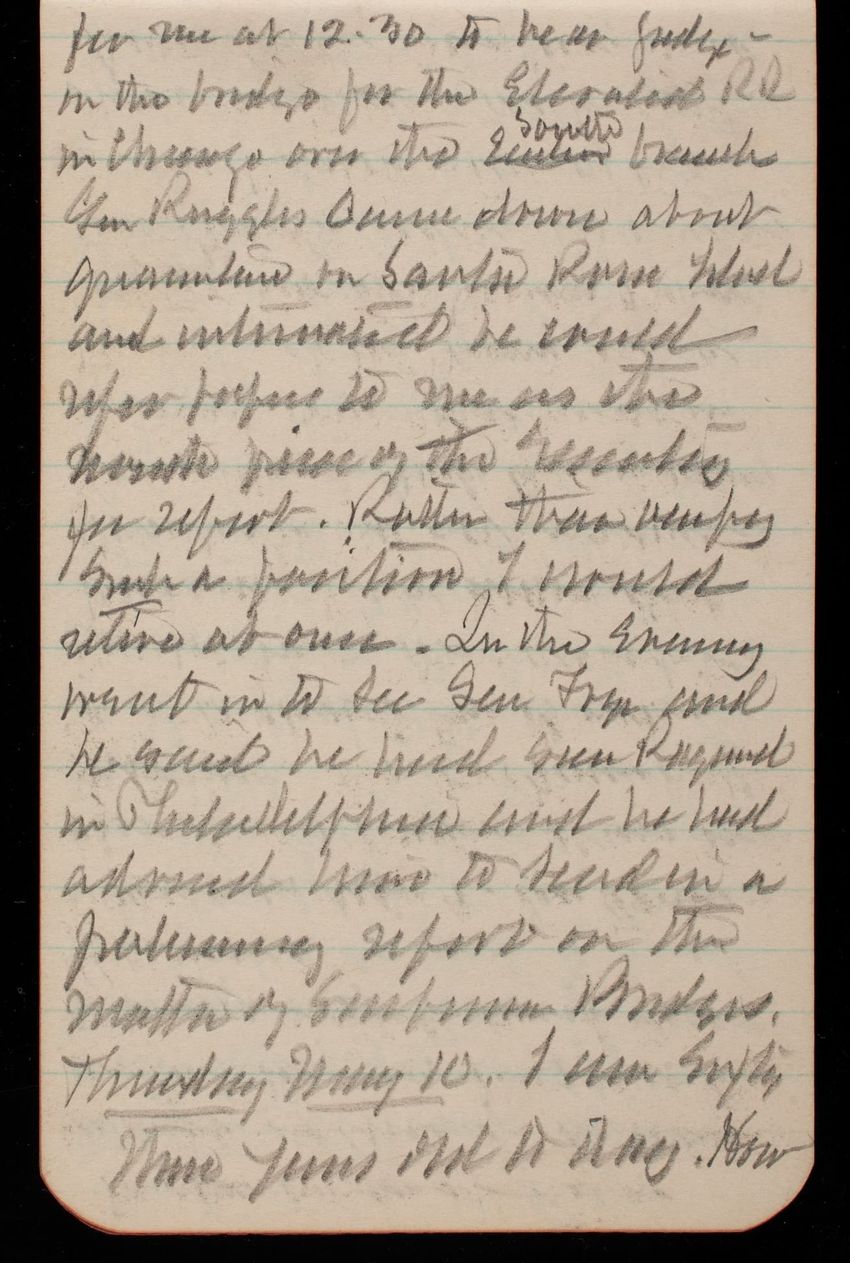 for me at 12.30 to hear
on the bridge for the Elevated RR
in Chicago over the South branch
Gen Ruggles Came down about
quarantine on Santa Rosa Isld
and intimated he could
refer papers to me as the
mouth piece of the Secretary
for report. Rather than occupy
Such a position I would
retire at once. In the Evening
went in to See Gen Fry and
he said he had seen Raymond
in Philadelphia and he had
advised him to Send in a
preliminary report on the
matter of Bridges.
Thursday May 10. I am Sixty
three years old to day. How